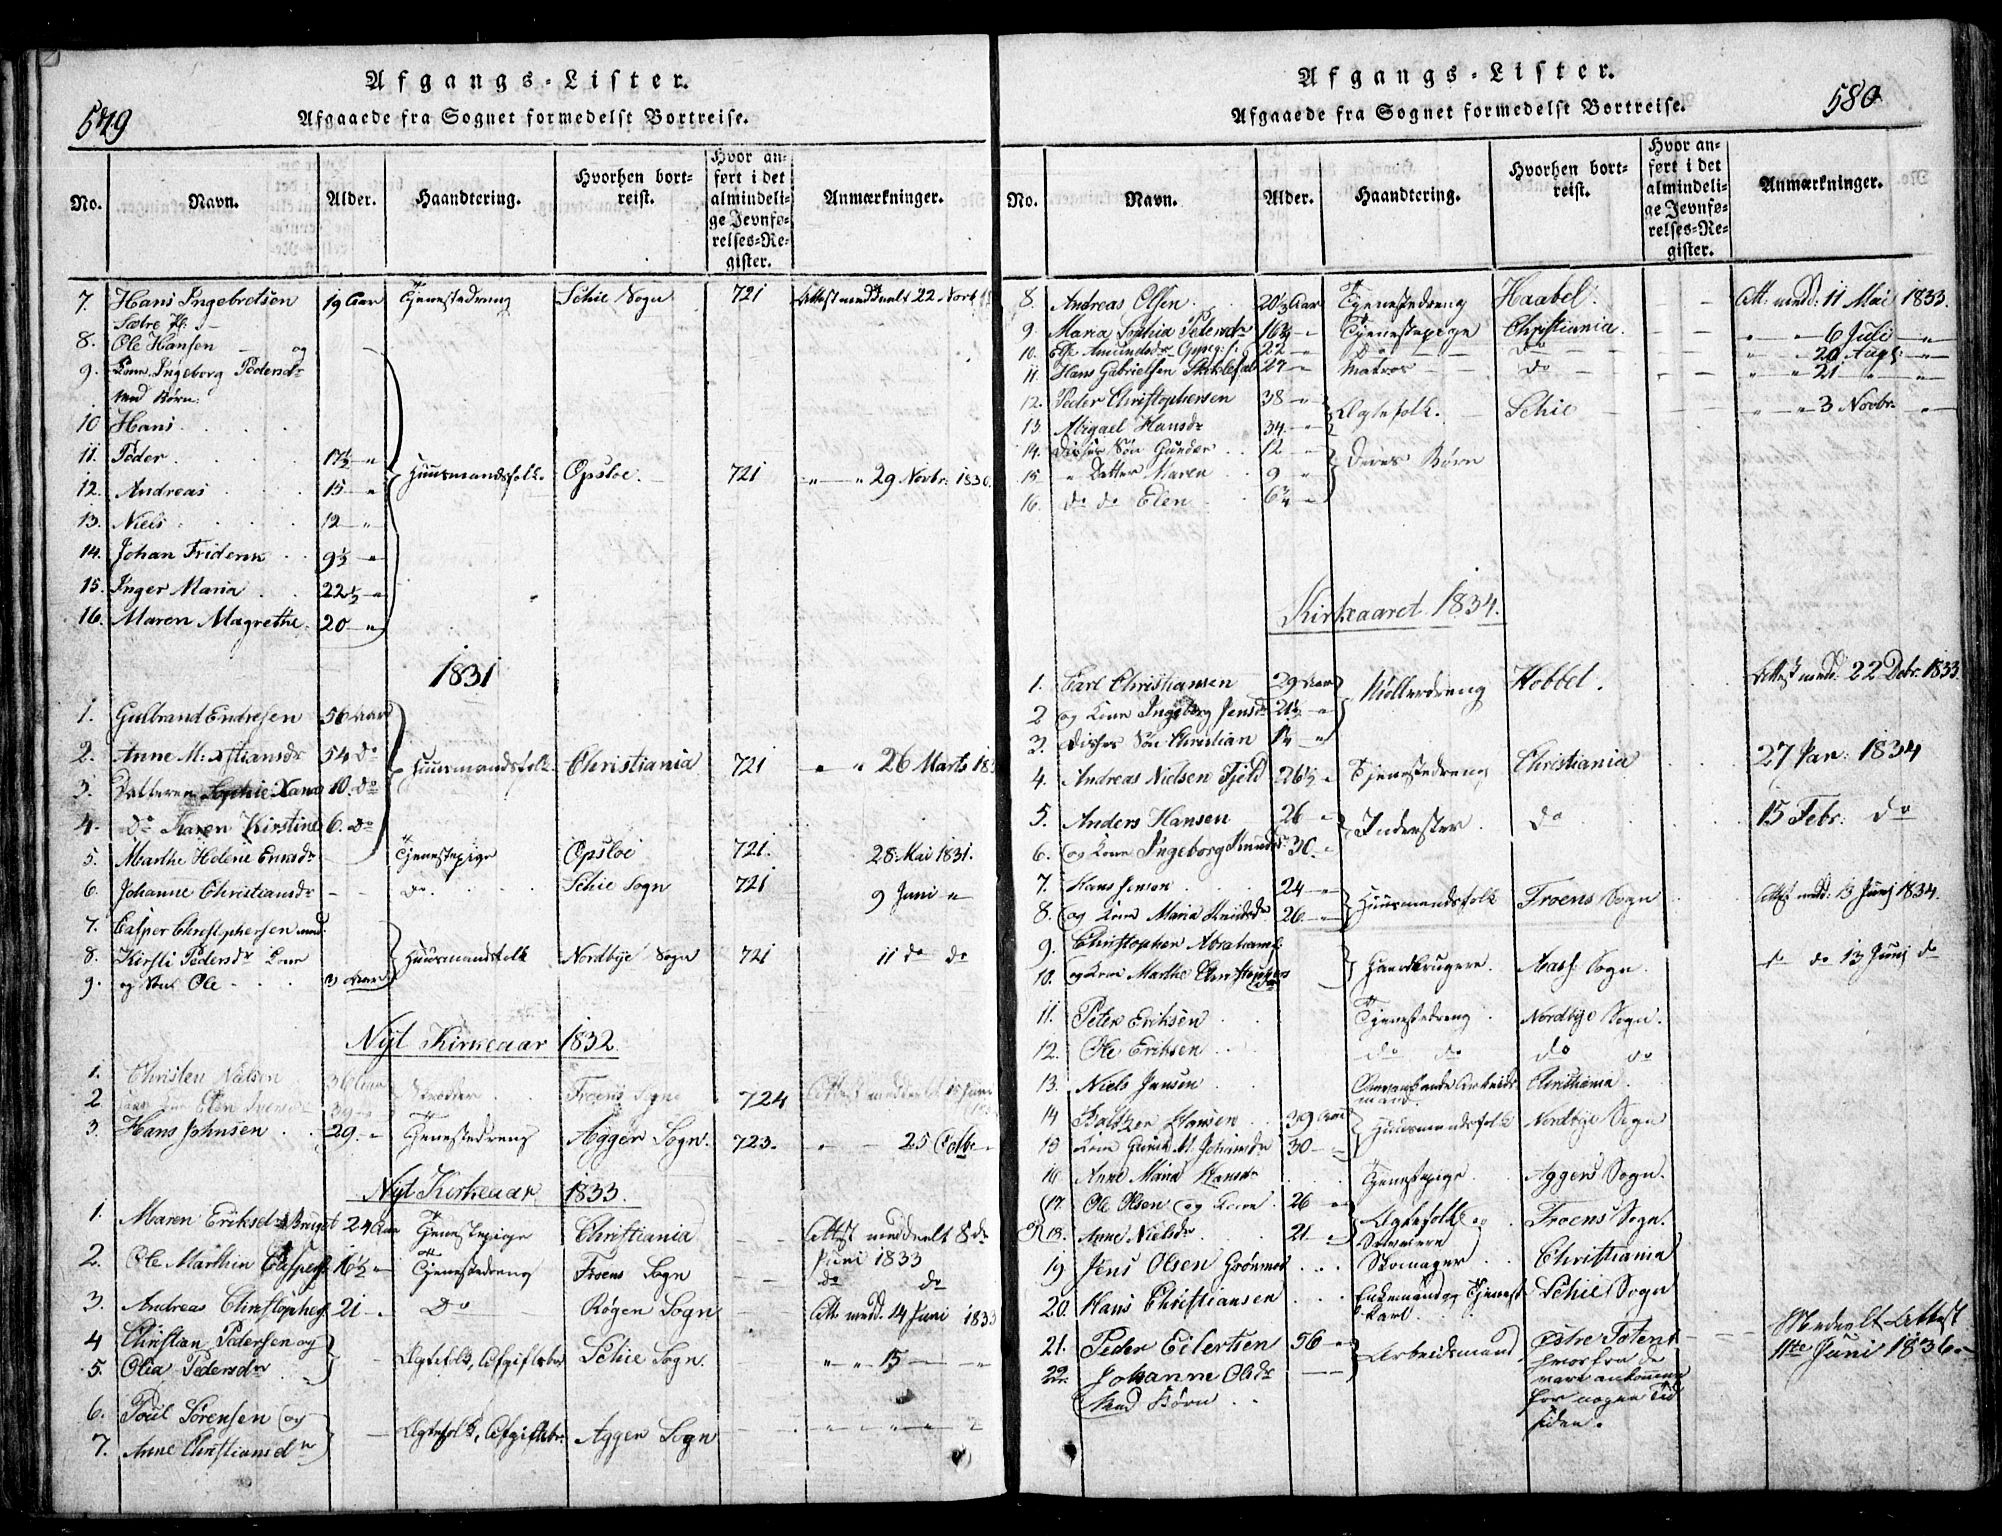 579
Afgangs-Lister.
Afgaaede fra Sognet formedelst Bortreise.
No. Navn. Alder. Haandtering. Hvorhen bortreist. Hvor anført i det almindelige Jevnførelses-Register. Anmærkninger.
7. Hans Ingebretsen 19 Aar Tjenestedreng Schie Sogn 721 Attest meddeelt 22 Novb
8. Ole Hansen og
9. Kone Ingeborg Pedersdr
med Børn:
10 Hans
11. Peder 17½ "
12. Andreas 15 " Huusmandsfolk. Opsloe. 721 " " 29 Novbr: 1830.
13. Niels 12 "
14. Johan Friderik 9½ "
15. Inger Maria 22½ "
16. Maren Magrethe 20 "
1831
1. Gulbrand Endresen 56 Aar
2. Anne M: Xstiansdr 54 do Huusmandsfolk Christiania 721 " " 26 Marts 183
3. Datteren Sophie 10. do
4. do Karen Kirstine 6. do
5. Marthe Helene Tjenestepige Opsloe 721. 28. Mai 1831.
6. Johanne Christiansdr do Schie Sogn 721 9 Juni "
7. Casper Christophersen med
8. Kirsti Pedersdr Kone Huusmandsfolk Nordbye Sogn 721 11 do do
9. og Søn Ole
Nyt Kirkeaar 1832.
1. Christen Nielsen 36 Aar
2 Froens Sogn 724
3. Hans Johnsen 29. " Tjenestedreng Agger Sogn. 723. " 25
Nyt Kirkeaar 1833.
1. Maren Eriksd 24 Aar Tjenestepige Christiania Attest meddeelt 8de
Juni 1833
2. Ole Marthin 16½ " Tjenestedreng Froens Sogn do do
3. Andreas Christophers 21 " Do Røgen Sogn Att: medd. 14 Juni 1833
4 Christian Pedersen og
5. Olia Pedersdr Ægtefolk, Schie Sogn. " " 15 "
6. Poul Sørensen og
7. Anne Christiansdr Ægtefolk, Agger Sogn
580
Afgangs-Lister.
Afgaaede fra Sognet formedelst Bortreise.
No. Navn. Alder. Haandtering. Hvorhen bortreist. Hvor anført i det almindelige Jevnførelses-Register. Anmærkninger.
8. Andreas Olsen 20⅓ Aar Tjenestedreng Haabel. Att. medd: 11 Mai 1833.
9. Maria Pedersdr 16¾ " Tjenestepige Christiania. " " 6 Juli "
10. Else Amundsdr 22 " Do do " " 20 Aug: "
11. Hans Gabrielsen 27 " Matros do " " 21 " "
12. Peder Christophersen 38 " Ægtefolk. Schie " " 3 Novbr. "
13 Abigael Hansdr 34 "
14. Disses Søn Gunder 12 " Deres Børn
15 " Datter Maren 9 "
16. do do Elen 6¾ "
Kirkeaaret 1834.
1. Carl Christiansen 29 Aar Møllerdreng Hobbel. Attest medd. 22 Debr. 1833.
2 og Kone Ingeborg Jensdr 21½ "
3. Disses Søn Christian "
4. Andreas Nielsen Fjeld 26½ " Tjenestedreng Christiania 27 Jan: 1834
5. Anders Hansen 26 " Inderster. do 15 Febr. do
6. og Kone Ingeborg 30. "
7. Hans Jensen 24 " Huusmandsfolk Froens Sogn Attest medd: 13 Junj 1834.
8. og Kone Maria 26 "
9. Christopher Abrahams
10. og Kone Marthe Christophersdr Gaardbrugere. Aas Sogn. do do 13 Junj do
11. Peter Eriksen Tjenestedreng Nordbye Sogn.
12. Ole Eriksen do do do do
13. Niels Jensen Arbeidsmand Christiania.
14 Baltzer Hansen 39 Aar Huusmandsfolk Nordbye Sogn
15 Kone 30 "
16 Anne Maria Hansdr Tjenestepige Aggers Sogn.
17. Ole Olsen og Kone 26 " Ægtefolk og Froens Sogn.
18. Anne Nielsdr 21 "
19 Jens Olsen Grønmo Skomager Christiania
20. Hans Christiansen Enkemand og Tjeneste Karl Schie Sogn
21. Peder Eilertsen 56 " Arbeidsmand Østre Toten Meddelt Attest
22. Johanne Olsdr hvorfra de 11te Juni 1836.
Med Børn vare ankomne
for nogen Tid
siden.